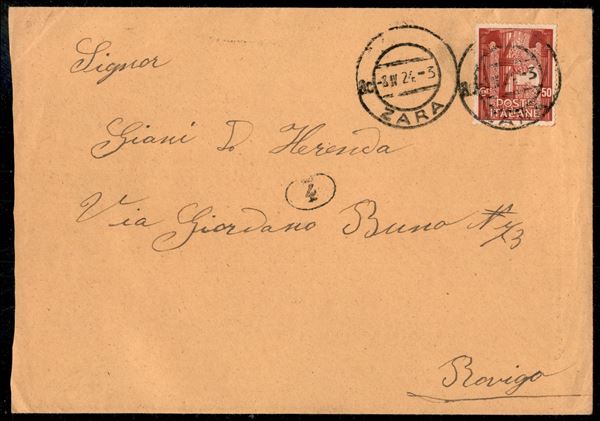 Signor
-8 IV 24 -3
ZARA
50
POSTE
ITALIANE
Giani I. Herenda
4
Via Giordano Bruno N 73
Rovigo